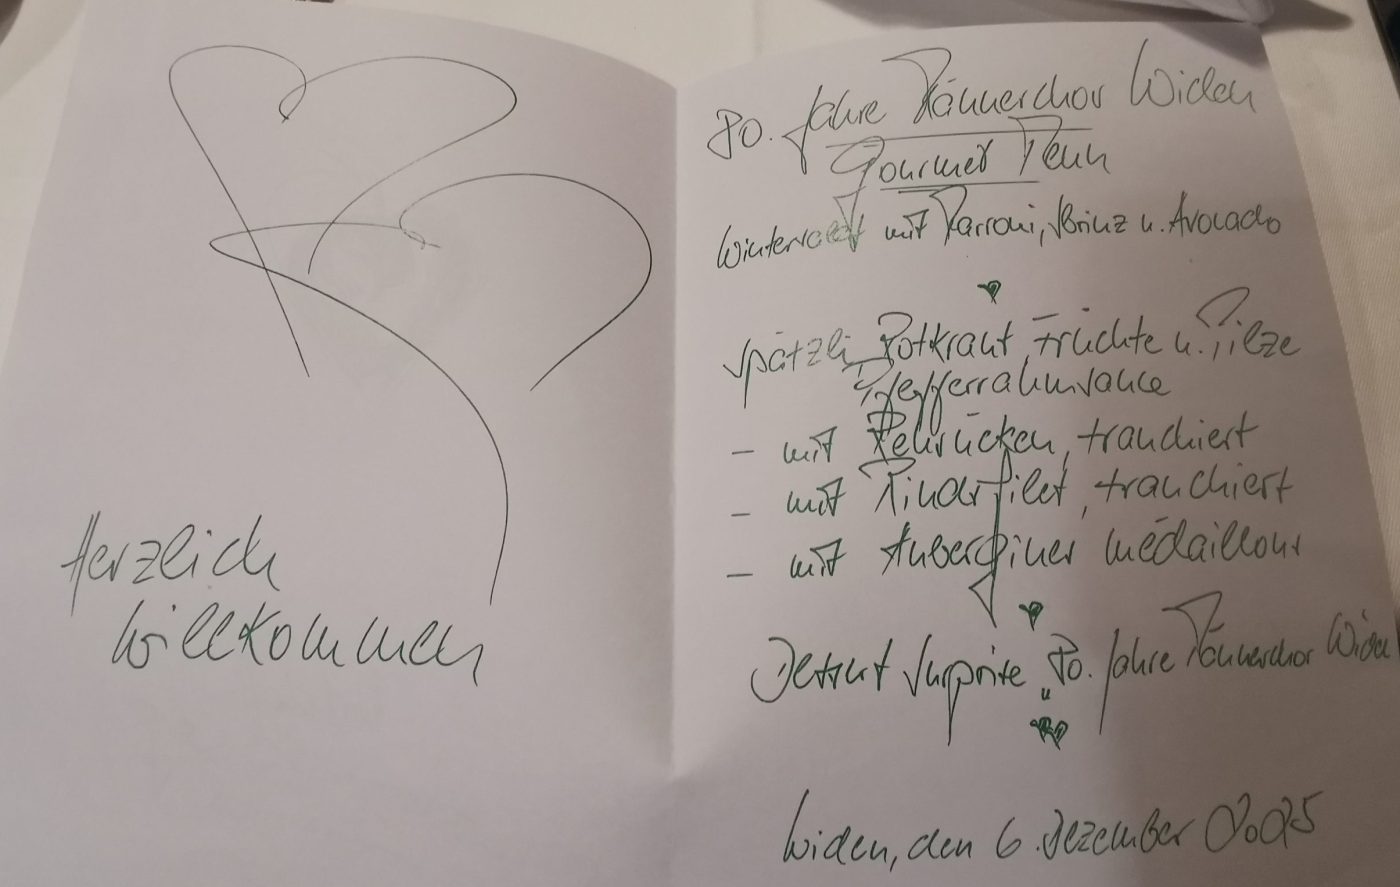 Herzlich
Willkommen
80. Jahre Männerchor Widen
Gourmet Menu
Wintersalat mit Marroni, Sbrinz u. Avocado
Spätzli, Rotkraut, Früchte u. Pilze
Pfefferrahmsauce
- mit Rehrücken, tranchiert
- mit Rindsfilet, tranchiert
- mit Auberginen médaillons
Dessert Surprise „80. Jahre Männerchor Widen
Widen, den 6. Dezember 2025